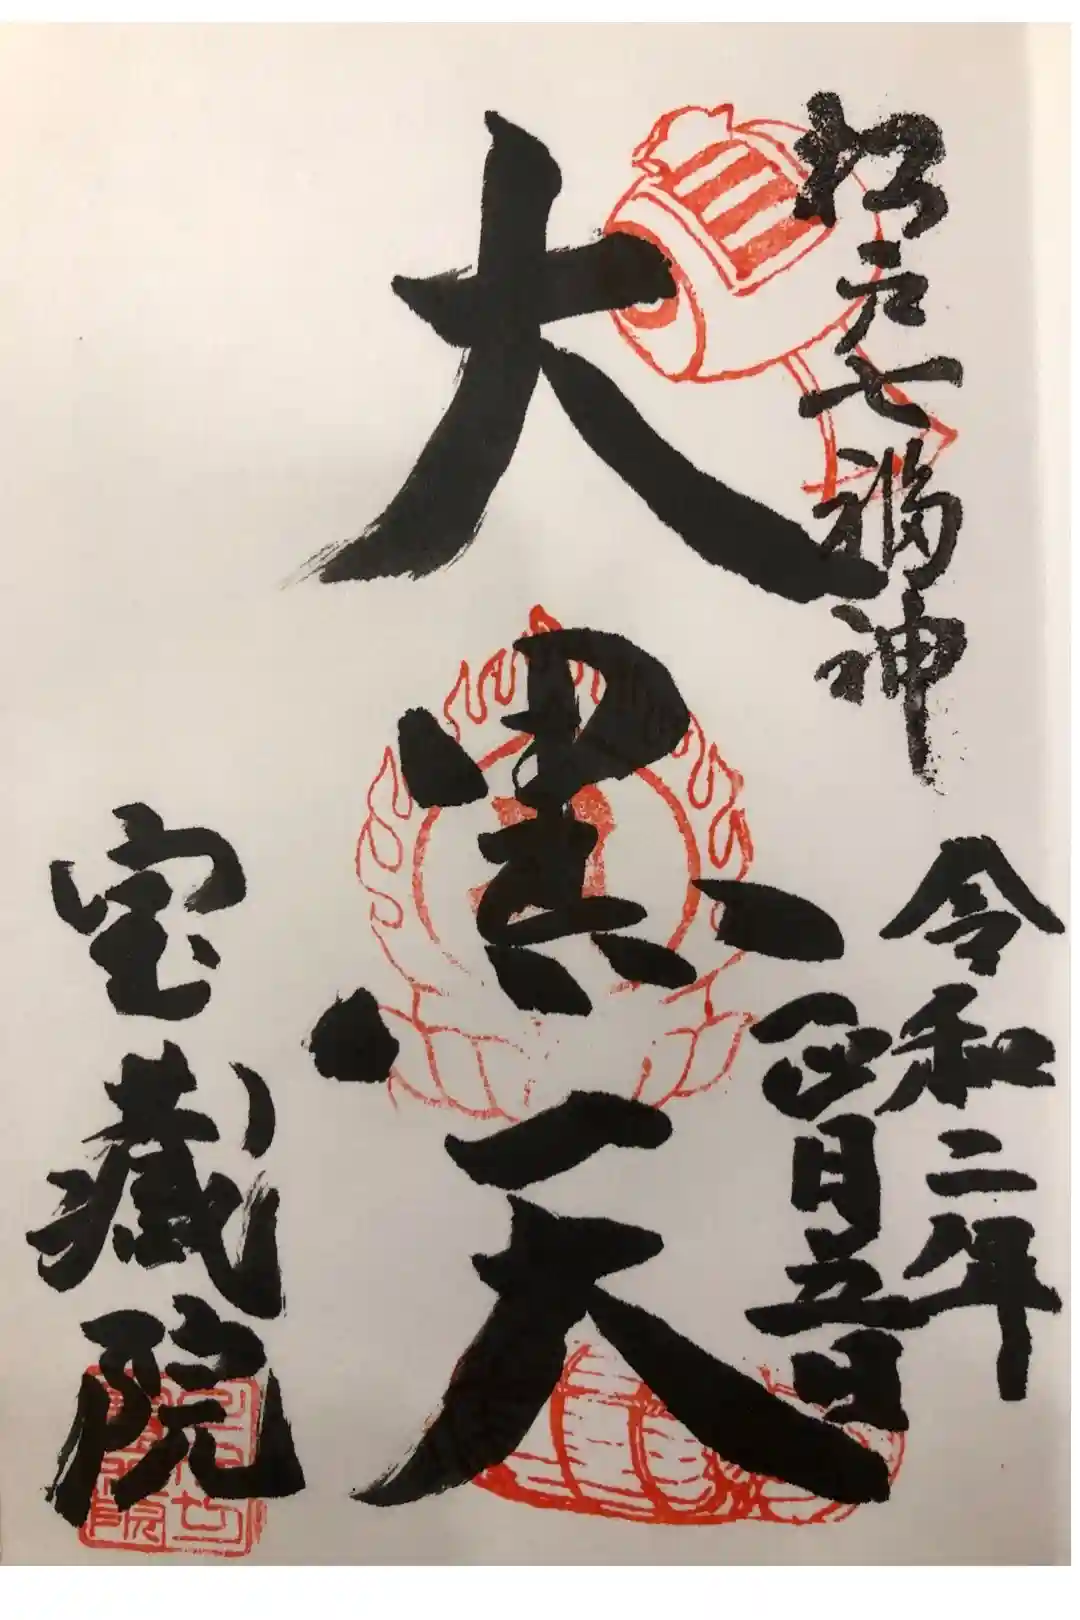 松戸七福神
令和二年
四月五日
大黒天
宝蔵院